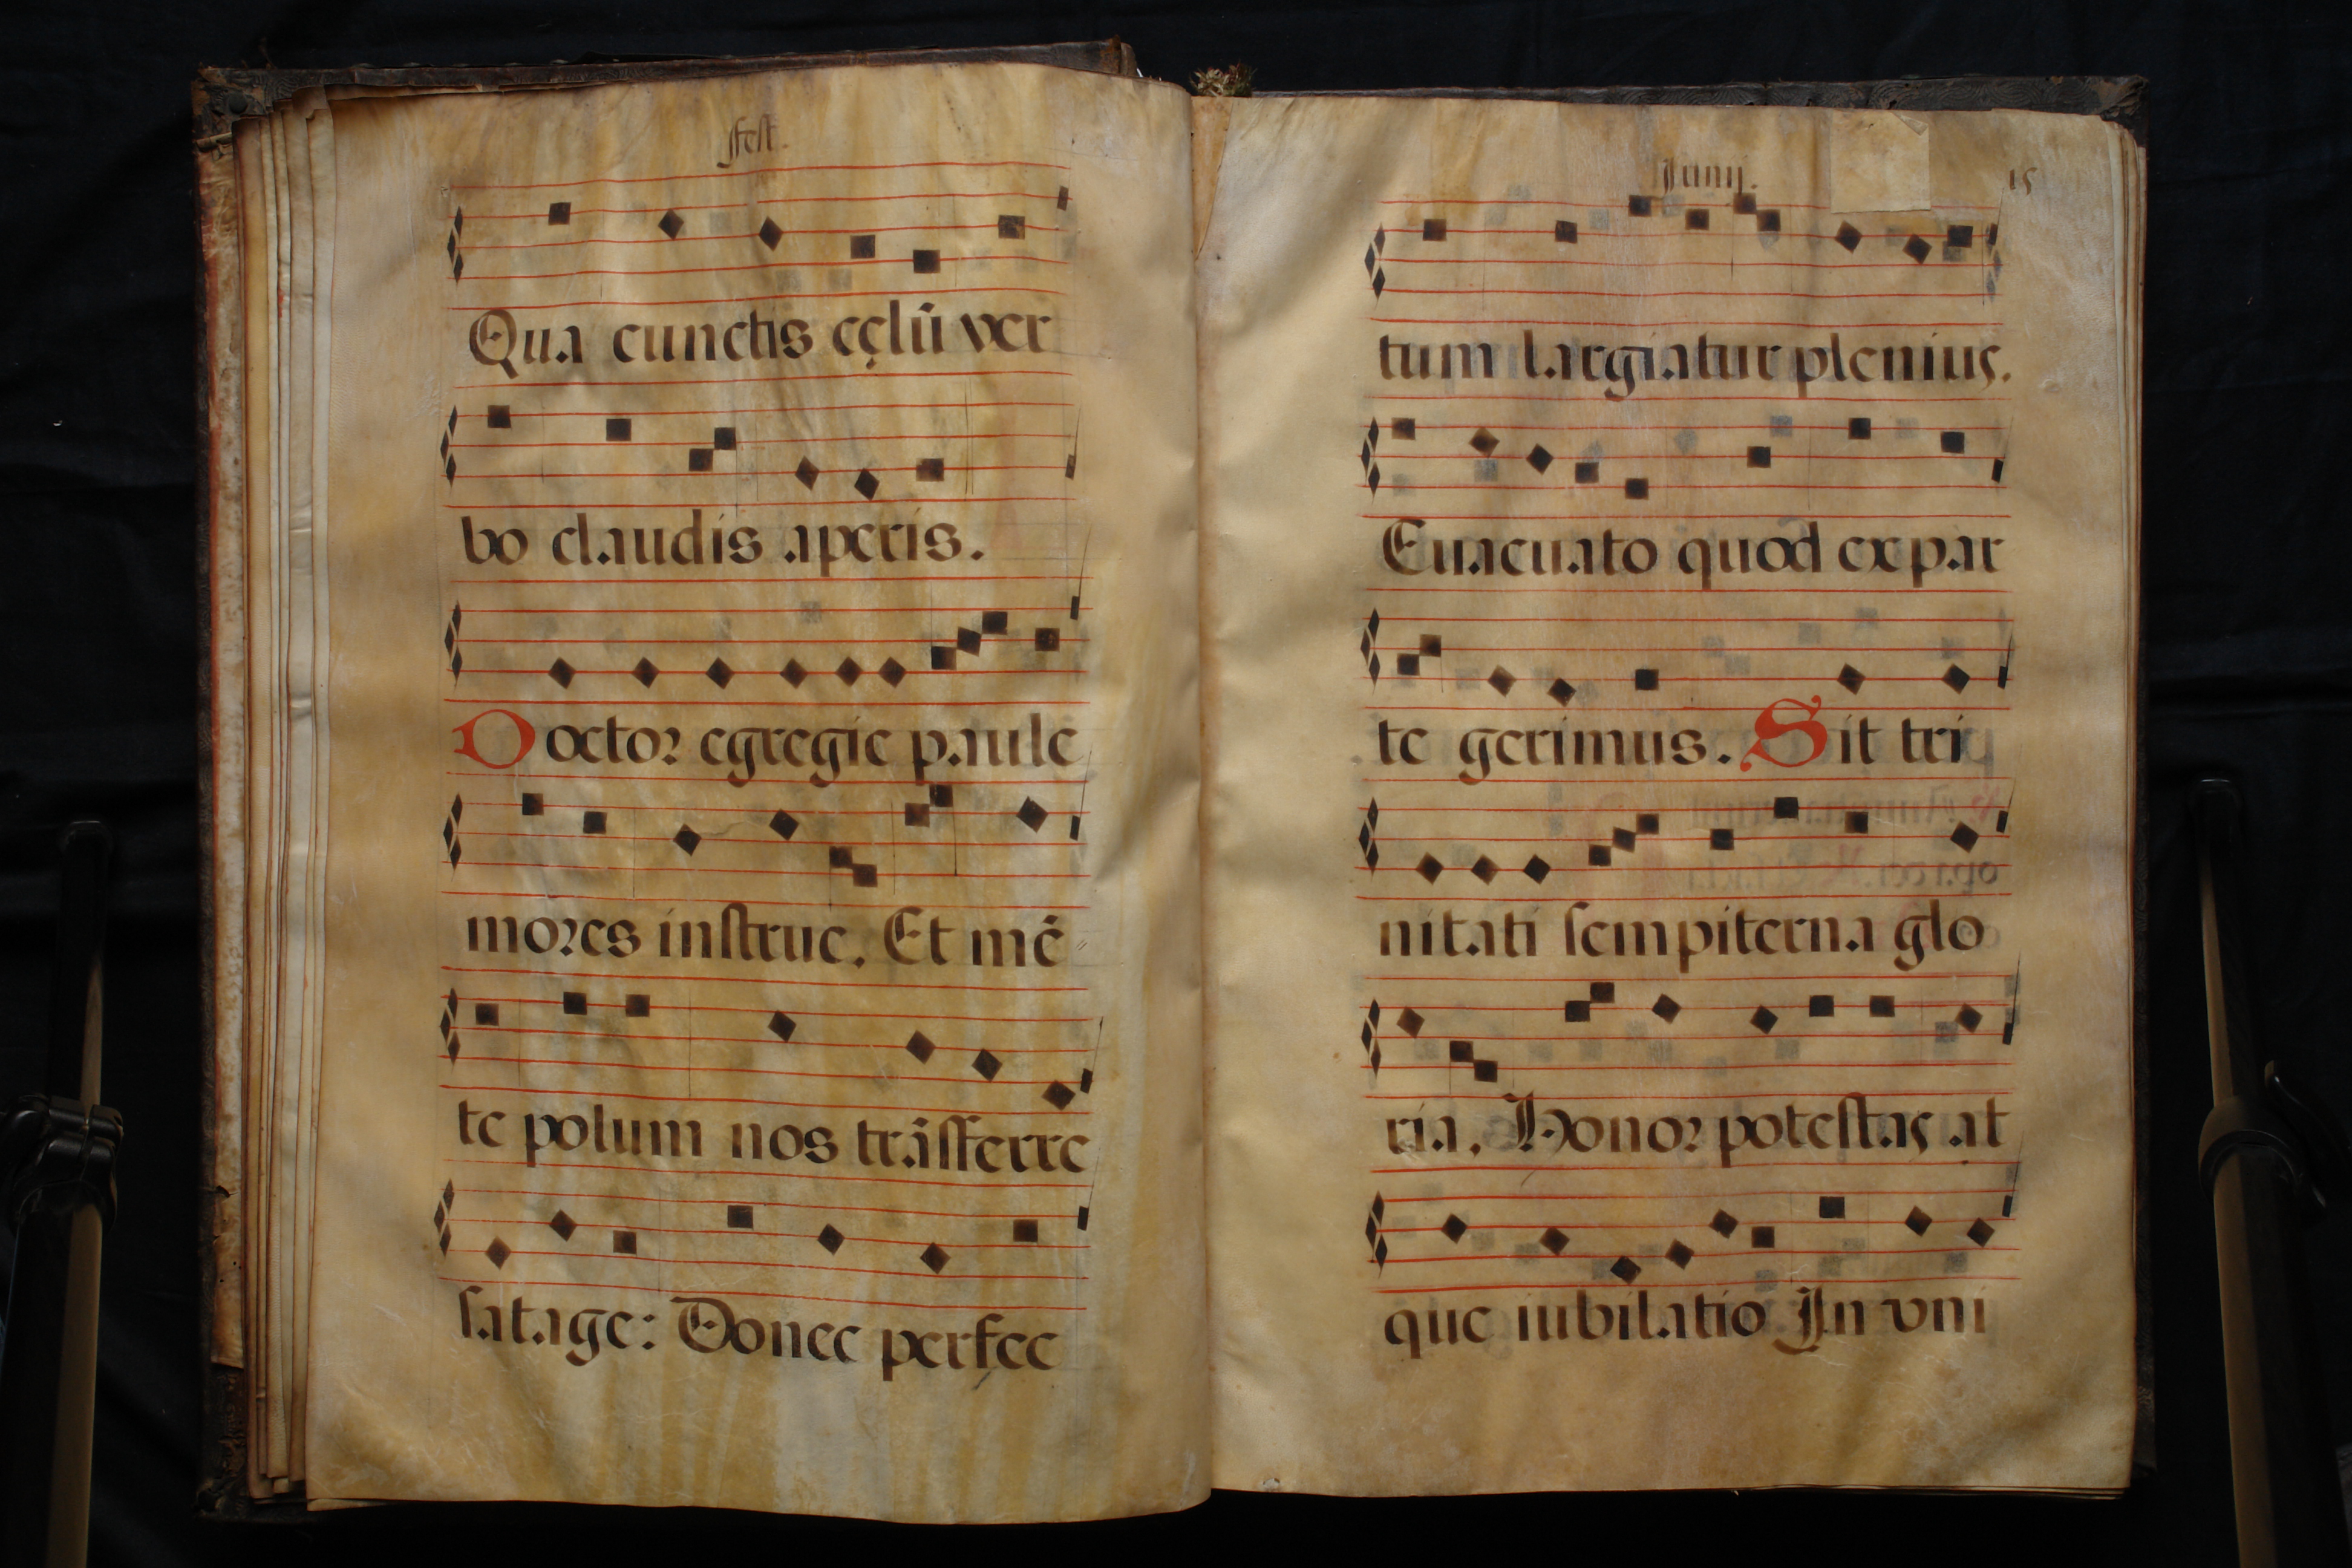 fest.
Qua cunctis cęlū ver
bo claudis aperis.
Doctor egregie paule
mores instrue. Et mē
te polum nos trāsferre
satage: Donec perfec
Junij.
15
tum largiatur plenius.
Euacuato quod ex par
te gerimus. Sit tri
nitati sempiterna glo
ria. Honor potestas at
que iubilatio In vni